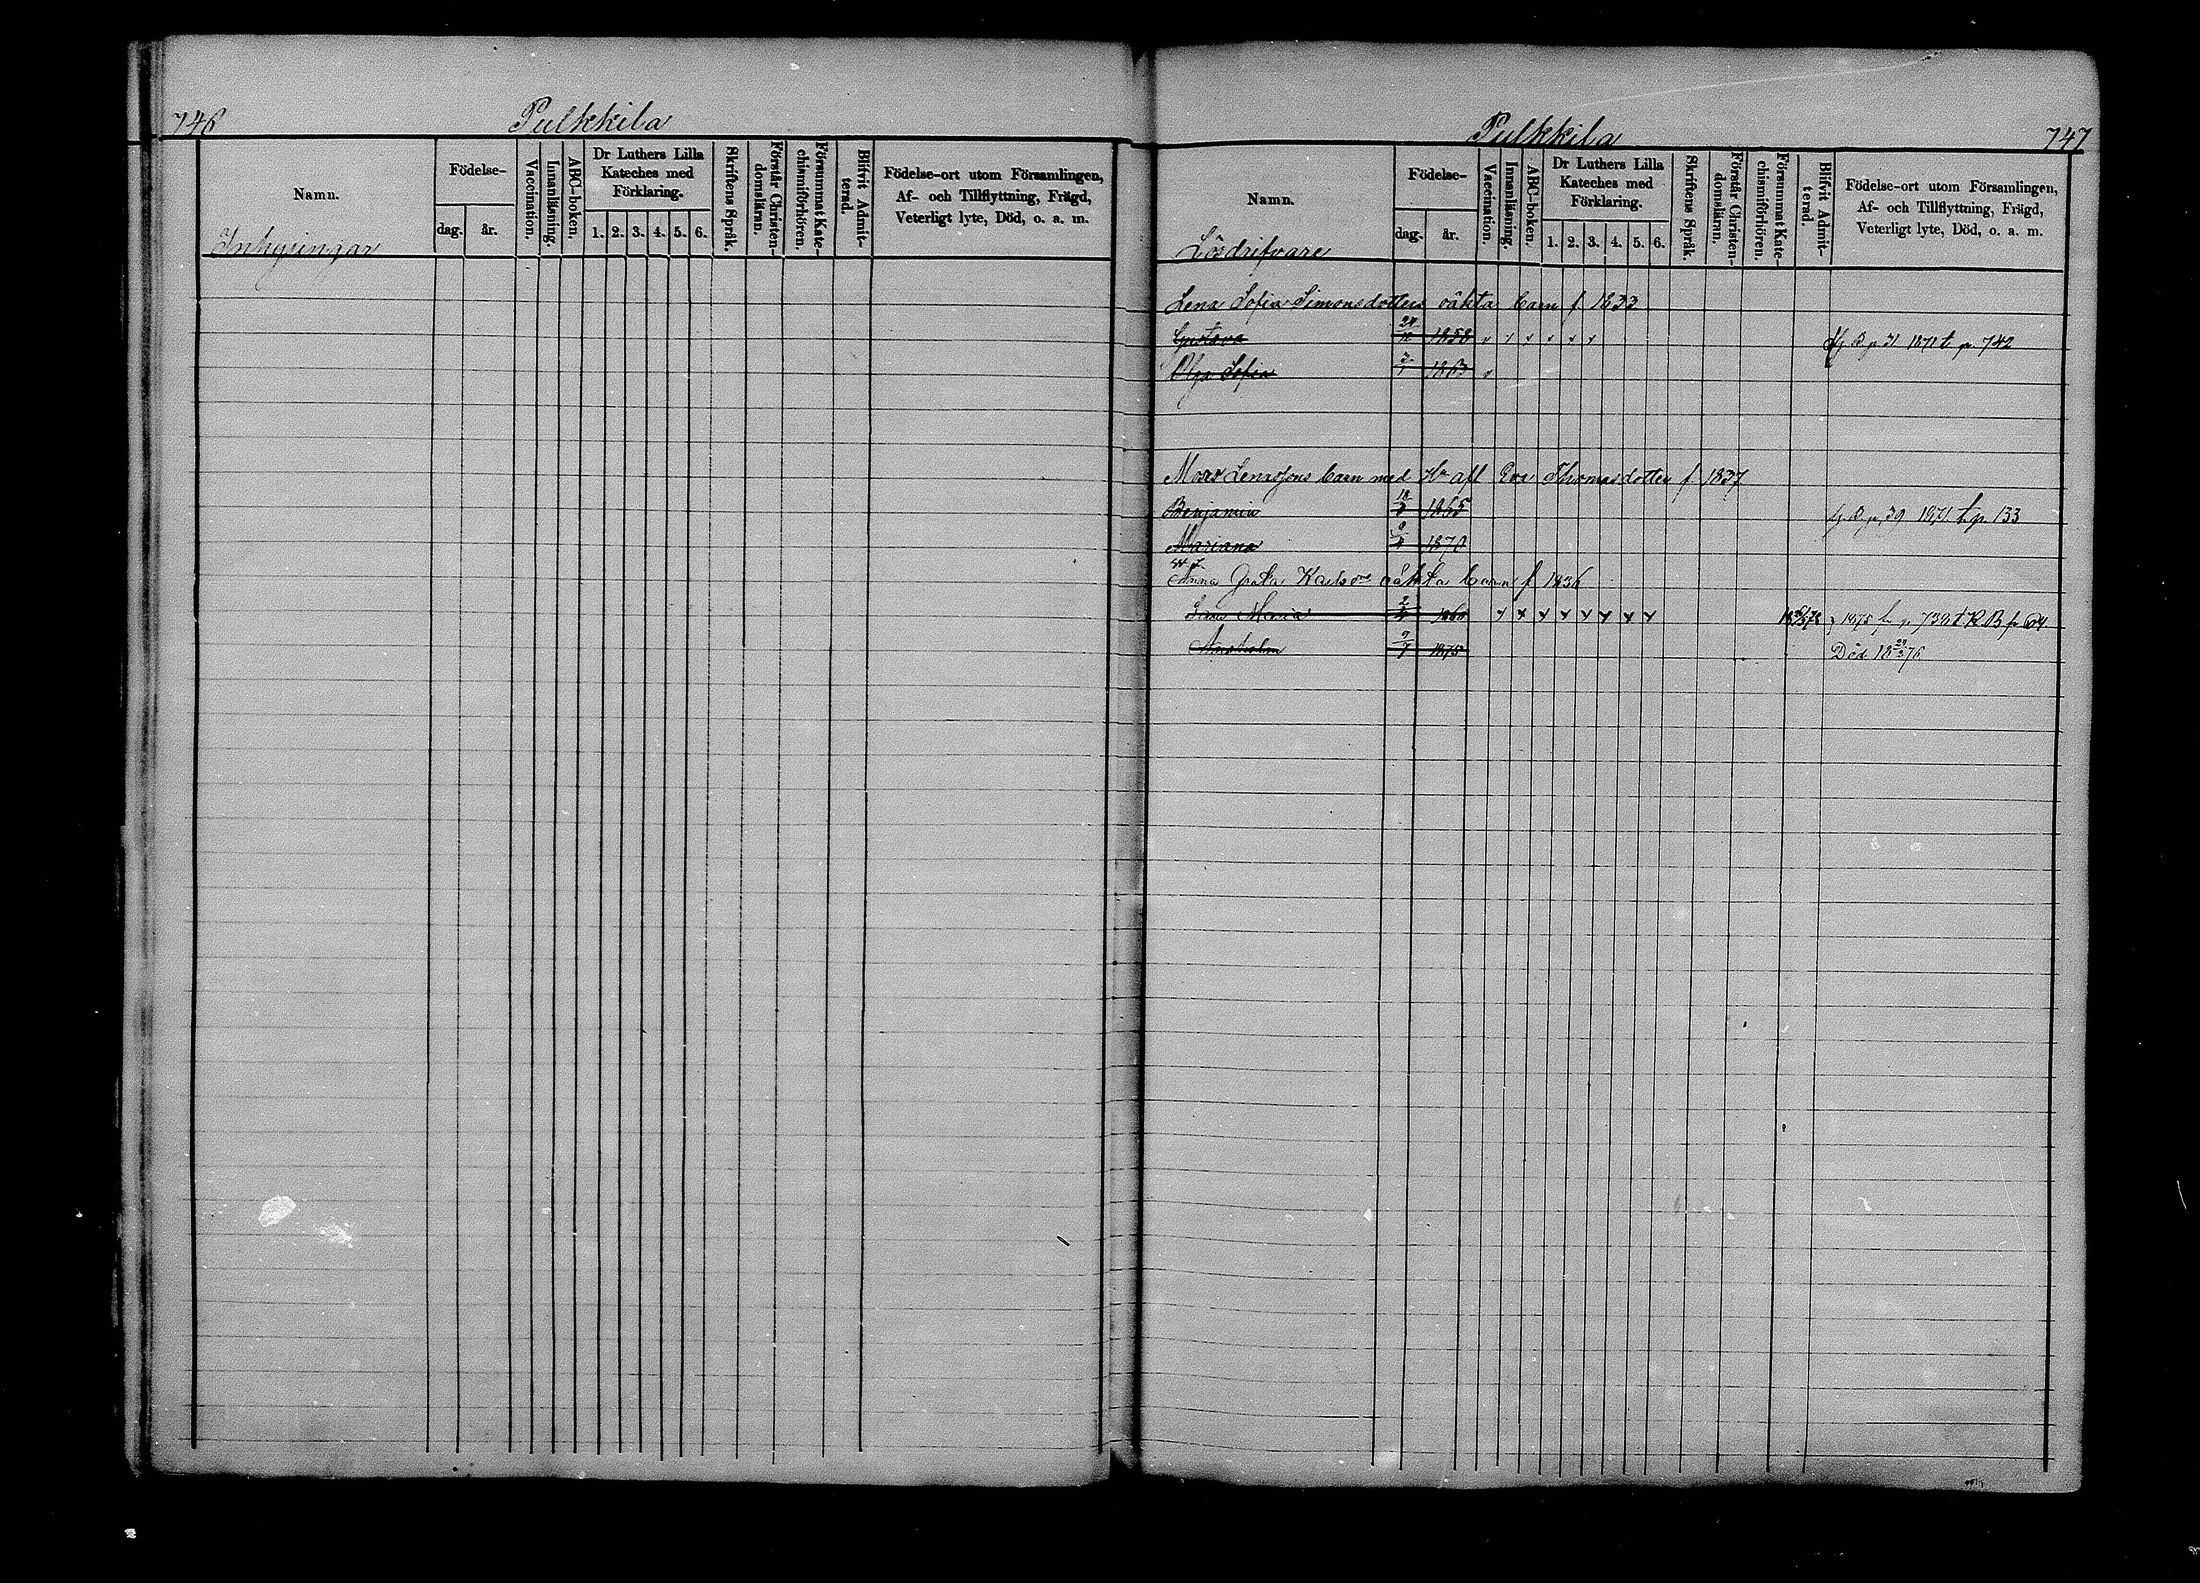 746
Pulkkila
Namn.
Födelse-
dag.
år.
Vaccination.
Innanläsning.
ABC-boken.
Dr Luthers Lilla
Kateches med
Förklaring.
1. 2. 3. 4. 5. 6.
Skriftens Språk.
Förstår Christen-
domsläran.
Försummat Kate-
chismiförhören.
Blifvit Admit-
terad.
Födelse-ort utom Församlingen,
Af- och Tillflyttning, Frägd,
Veterligt lyte, Död, o. a. m.
Inhysingar
Pulkkila
747
Namn.
Födelse-
dag.
år.
Vaccination.
Innanläsning.
ABC-boken.
Dr Luthers Lilla
Kateches med
Förklaring.
1. 2. 3. 4. 5. 6.
Skriftens Språk.
Förstår Christen-
domsläran.
Försummat Kate-
chismiförhören.
Blifvit Admit-
terad.
Födelse-ort utom Församlingen,
Af- och Tillflyttning, Frägd,
Veterligt lyte, Död, o. a. m.
Lösdrifvare
Lena Sofia Simonsdotters oäkta barn f 1833
Gustava 1858 1871 t. p. 742
Olga Sofia 1863
barn med Eva Thomasdotter f 1837
Benjamin 18/3 1865 1871 t. p. 133
Mariana 1870
Anna Greta Karls oäkta barn f 1836
Maria 1860 1875 fr p 739
9/7 1875 Död 18 76